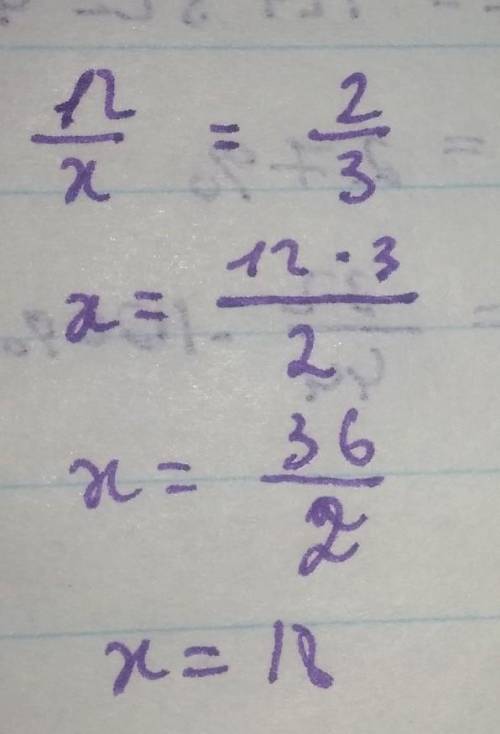 12/x = 2/3
x = 12 · 3/2
x = 36/2
x = 18